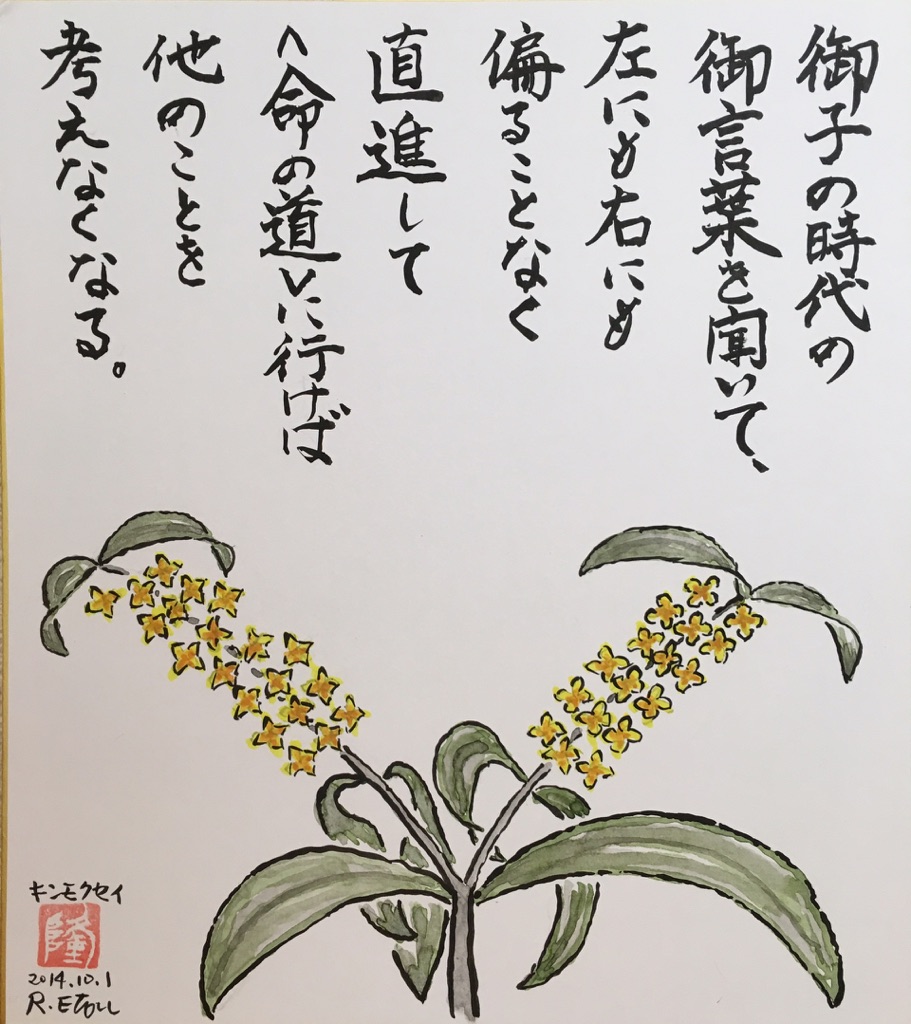 御子の時代の
御言葉を聞いて、
左にも右にも
偏ることなく
直進して
<命の道>に行けば
他のことを
考えなくなる。
キンモクセイ
隆
2014.10.1